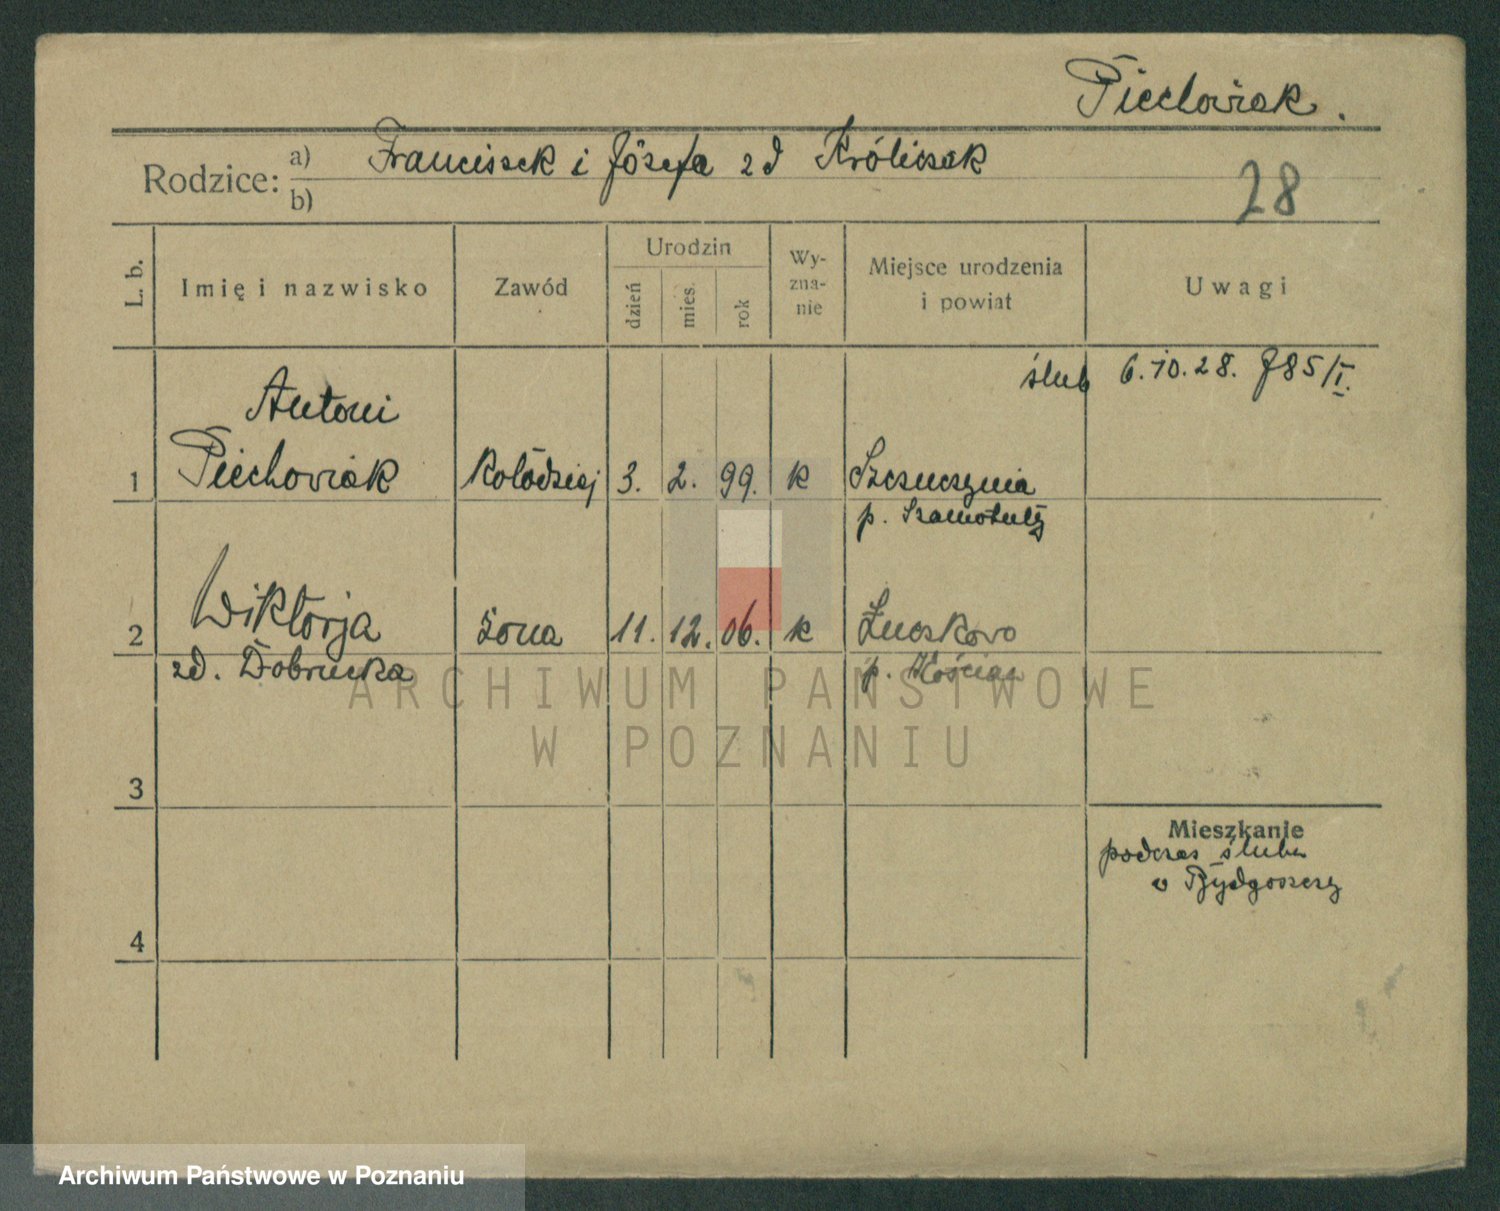 Piechowiak.
Rodzice: a) Franciszek i Józefa zd Króliczak
b)
28
L. b.
Imię i nazwisko
Zawód
Urodzin
dzień
mies.
rok
Wy-
zna-
nie
Miejsce urodzenia
i powiat
Uwagi
ślub 6.10.28. J85/I.
Antoni
1 Piechowiak Kołodziej 3. 2. 99. k Szczuczynia
p. Szamotuły
2 Wiktorja żona 11. 12. 06. k
zd. Dobrucka p. Kościan
ARCHIWUM PAŃSTWOWE
W POZNANIU
3
Mieszkanie
podczas ślubu
w Bydgoszczy
4
Archiwum Państwowe w Poznaniu